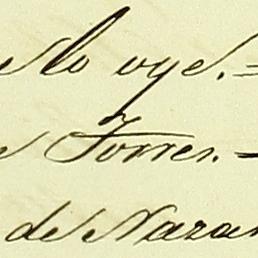 lo oye.=
Torres.-
de Naran